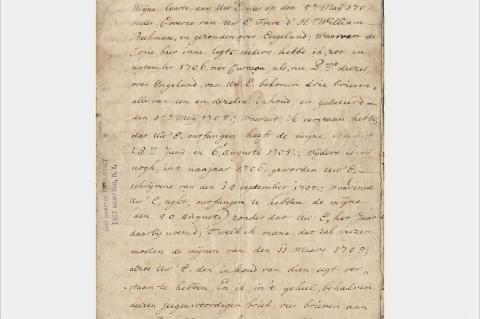 Mijne laatste aan Uw E was op den 5en Maij 170
onder Coverto van Uw E Frere d' Hr William
Beekman, en gezonden over Engeland; Waarvan de
Copie hier inne legt: sedert hebbe ik, zoo in
november 1706, over Curaçoa, als, nu
over Engeland, van Uw E, bekomen drie brieven,
alle van een en dezelve inhoud, en gedateerd
den 1en Maij 1705; Waaruit ik verstaan hebbe,
dat Uw E, ontfangen heeft de mijne van den
28en Junij en 6 augusto 170 ; Wijders is mij
nogh, in 't naajaar 1706, geworden Uw E,
schrijvens van den 12 september 1705; Waarinne
Uw E, zight, ontfangen te hebben de mijne
den 10 augusti zonder dat Uw E, het Jaar
daarbij noemd; T welk ik mene, dat zal wezen
moeten de mijnen van den 11 Maart 1705;
alzoo Uw E. den inhoud van dien zegt ver
staan te hebben, En ik, in 't geheel, behalven
dezen jegenswoordigen brief, vier brieven aan
EAST HAMPTON, N.Y.